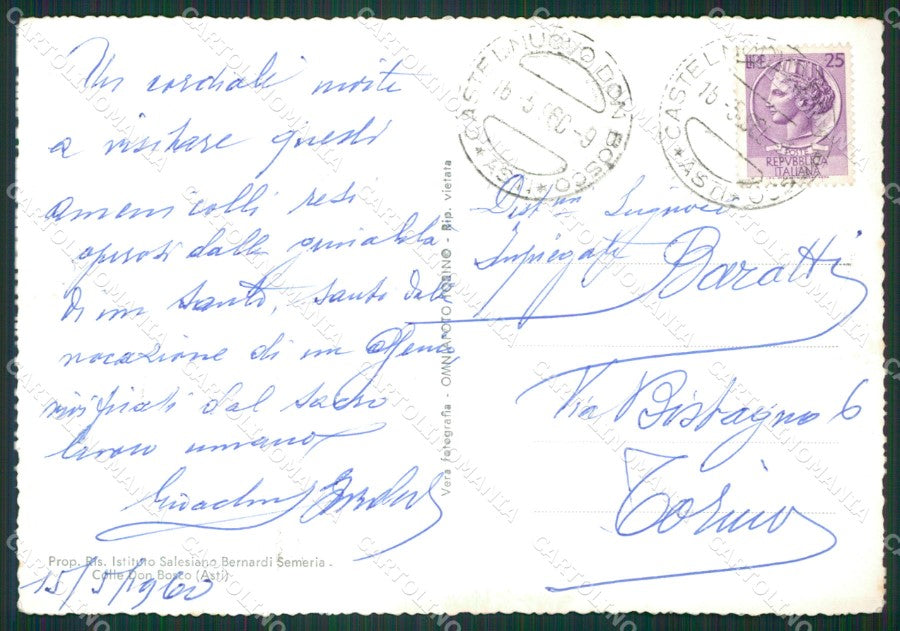 Un cordiale invito
a visitare questi
ameni colli resi
operosi dalla genialità
di un santo, santo dalla
vocazione di un
vivificati dal sacro
lavoro umano
Prop. Ris. Istituto Salesiano Bernardi Semeria -
Colle Don Bosco (Asti)
15/5/1960
Vera fotografia - OMNIAFOTO TORINO - Rip. vietata
CASTELNUOVO DON BOSCO
* ASTI *
16-5 60-9
CASTELNUOVO DON BOSCO
* ASTI *
LIRE 25
POSTE
REPVBBLICA
ITALIANA
Dist.ma Signora
Impiegata Baratti
Via Bistagno 6
Torino
CARTOLINOMANIA